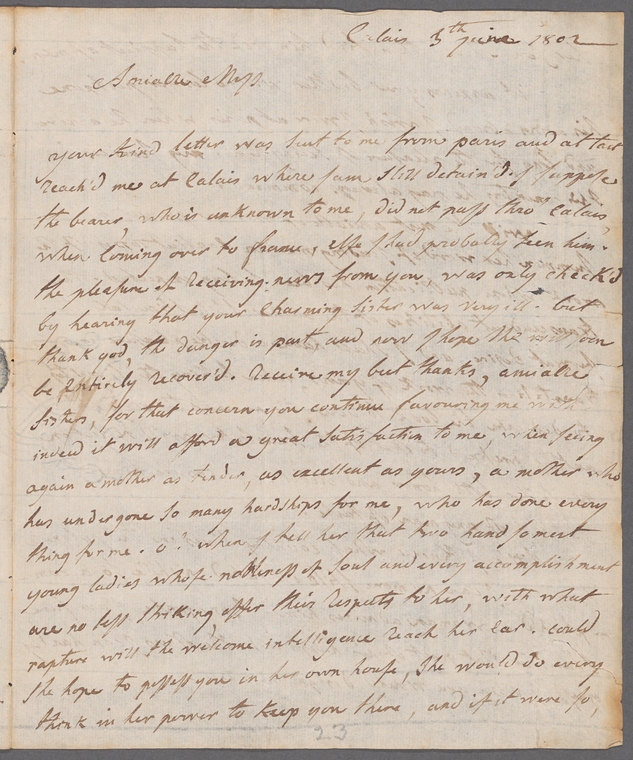 Calais 3th June 1802
Amialre Miss
your kind letter was sent to me from paris and at last
reach'd me at Calais where I am still detain'd. I suppose
the bearer, who is unknown to me, did not pass thro' Calais,
when coming over to france, else I had probably seen him.
the pleasure of Receiving news from you, was only check'd
by hearing that your Charming sister was very ill. but
thank god, the danger is past and now I hope she will soon
be Entirely recover'd. Receive my best thanks, amialre
sisters, for that concern you continue favouring me with
indeed it will afford a great satisfaction to me, when seeing
again a mother as tender, as excellent as yours, a mother who
has undergone so many hardships for me, who has done every
thing for me. o! when I tell her that two handsomest
young ladies whose nobleness of soul and every accomplishment
are no less striking, offer their Respects to her, with what
rapture will the welcome intelligence reach her ear. could
she hope to possess you in her own house, she would do every
think in her power to keep you there, and if it were so,
23